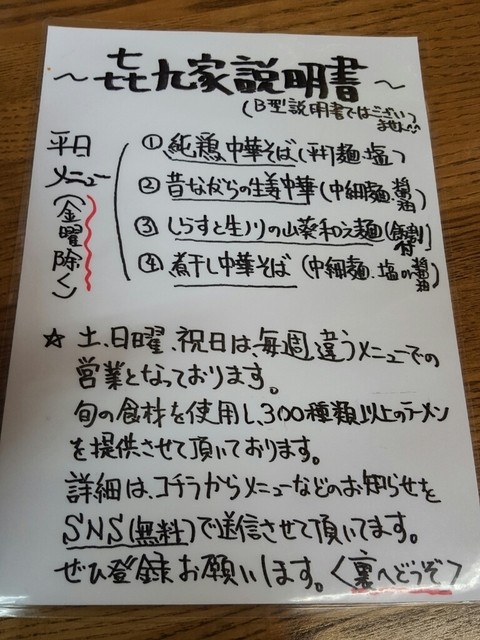 〜㐂九家説明書〜
(B型説明書ではございません)
平日
メニュー
(金曜除く)
① 純鶏中華そば(平打麺、塩)
② 昔ながらの生姜中華(中細麺、醤油)
③ しらすと生ノリの山葵和え麺(飯割付)
④ 煮干し中華そば (中細麺、塩or醤油)
☆ 土、日曜、祝日は、毎週違うメニューでの
営業となっております。
旬の食材を使用し、300種類以上のラーメン
を提供させて頂いております。
詳細は、コチラからメニューなどのお知らせを
SNS(無料)で送信させて頂いてます。
ぜひ登録お願いします。〈裏へどうぞ〉